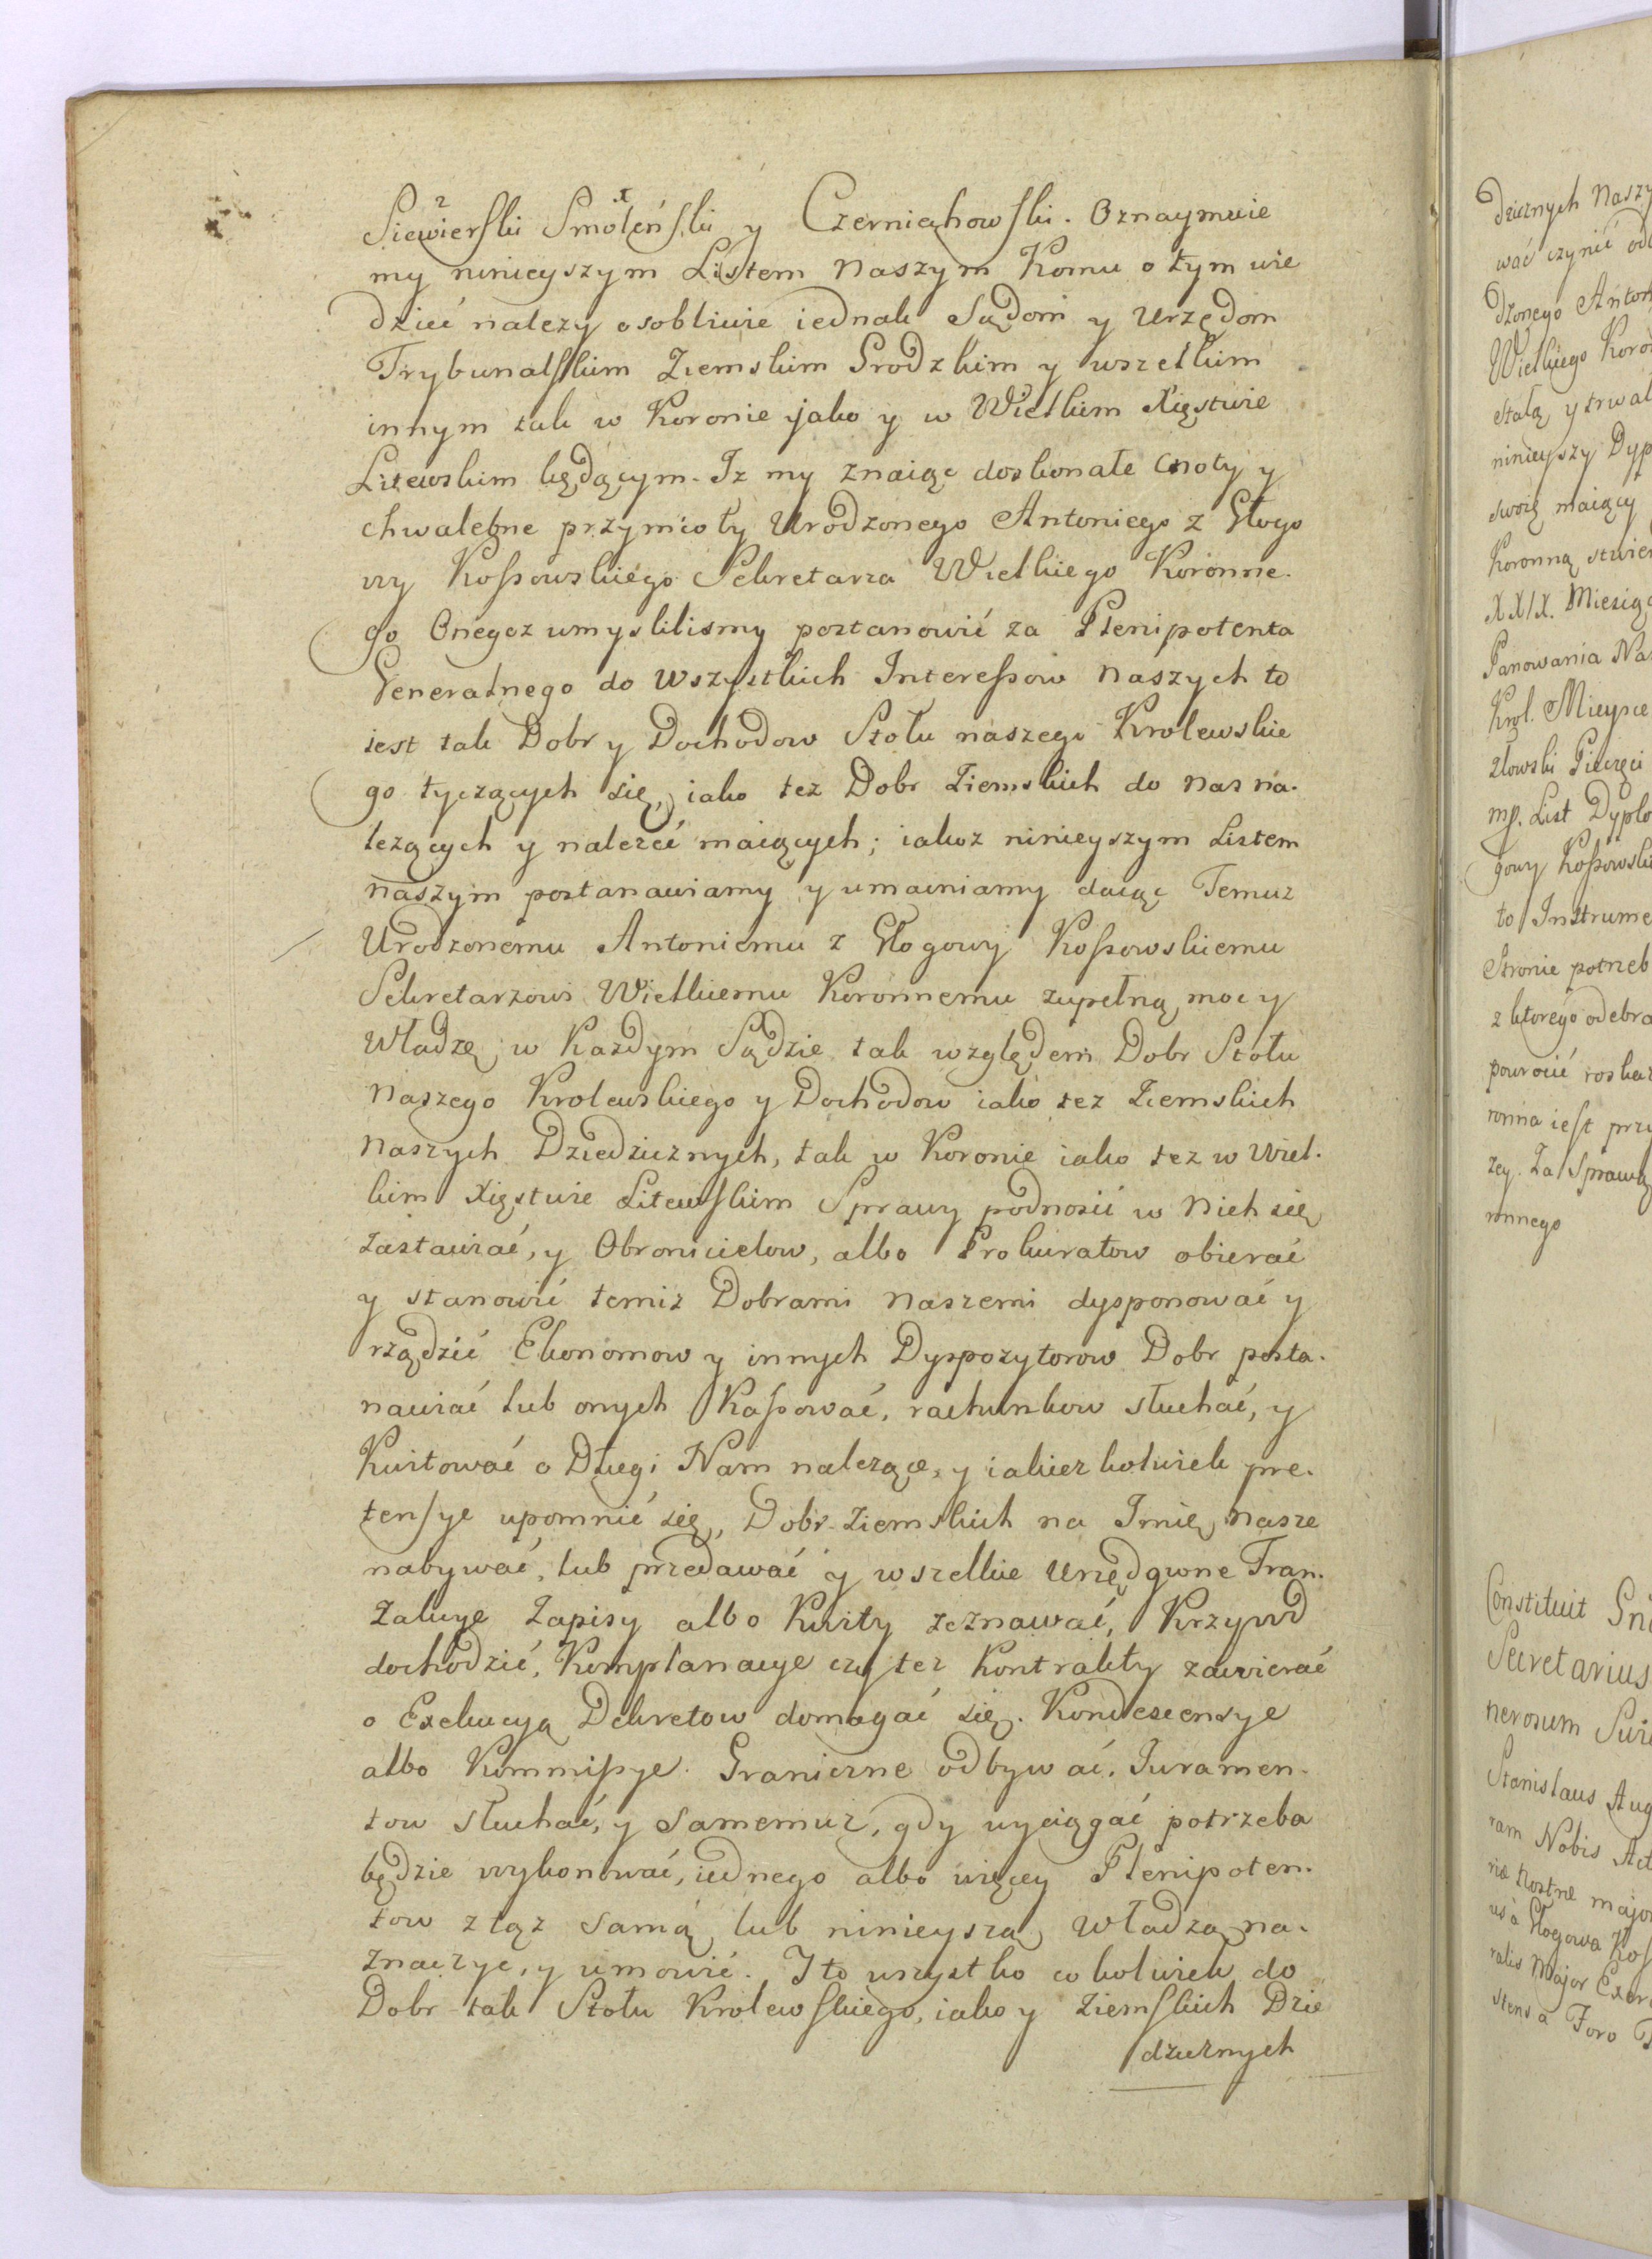 Siewierski Smoleński y Czerniechowski. Oznaymuie
my ninieyszym Listem Naszym Komu o tym wie
dzieć nalezy osobliwie iednak Sądom y Urzędom
Trybunalskim Ziemskim Grodzkim y wszelkim
innym tak w Koronie jako y w Wielkim Xięstwie
Litewskim będącym. Iz my znaiąc doskonałe Cnoty y
chwalebne przymioty Urodzonego Antoniego z Głogo
wy Kossowskiego Sekretarza Wielkiego Koronne-
go Onegoz umyslilismy postanowić za Plenipotenta
Generalnego do Wszystkich Interessow Naszych to
iest tak Dobr y Dochodow Stołu naszego Krolewskie
go tyczących się, iako tez Dobr Ziemskich do Nas na-
lezących y nalezeć maiących; iakoz ninieyszym Listem
naszym postanawiamy y umacniamy daiąc Temuz
Urodzonemu Antoniemu z Głogowy Kossowskiemu
Sekretarzowi Wielkiemu Koronnemu zupełną moc y
Władzę w Kazdym Sądzie tak względem Dobr Stołu
Naszego Krolewskiego y Dochodow iako tez Ziemskich
Naszych Dziedzicznych, tak w Koronie iako tez w Wiel-
kim Xięstwie Litewskim Sprawy podnosić w Nich się
zastawiać, y Obronicielow, albo Prokuratow obierać
y stanowić temiz Dobrami Naszemi dysponować y
rządzić Ekonomow y innych Dyspozytorow Dobr posta-
nawiać lub onych Kassować, rachunkow słuchać, y
Kwitować o Długi Nam nalezące, y iakiez kolwiek pre-
tensye upomnić się, Dobr Ziemskich na Imię Nasze
nabywać, lub przedawać y wszelkie Urzędowne Tran-
zakcye Zapisy albo Kwity zeznawać, Krzywd
dochodzić, Komplanacye czy tez Kontrakty zawierać
o Exekucyą Dekretow domagać się. Kondescensye
albo Kommissye Graniczne odbywać, Juramen-
tow słuchać, y Samemuz, gdy wyciągać potrzeba
będzie wykonować, iednego albo więcey Plenipoten-
tow z tąz Samą lub ninieyszą Władzą na-
znaczyc, y umowić. I to wszystko co kolwiek do
Dobr tak Stołu Krolewskiego, iako y Ziemskich Dzie
dzicznych
dzicznych Naszy
wać czynić od
dzonego Anton
Wielkiego Koro
stałą y trwał
ninieyszy Dyp
swoię maiący
Koronną stwier
XXIX. Miesiąc
Panowania Na
Krol. Mieysce
złowski Pieczęci
mp. List Dyplo
gowy Kossowski
to Instrume
Stronie potrzeb
z ktorego odebra
powrocić roskaz
ronna iest przy
zey. Za Sprawą
ronnego
Constituit
Secretarius
nerosum
Stanislaus Aug
ram Nobis Act
ria Nostræ major
us à Głogowa Kos
ralis Major Exer
stens a Foro